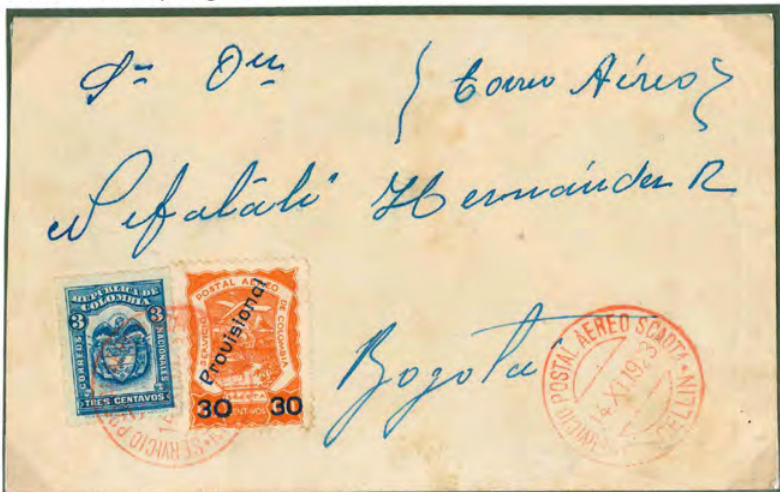 Sr Dn { Correo Aéreo }
Neftalí Hernández R
Bogotá
REPUBLICA DE
COLOMBIA
3 3
CORREOS NACIONALES
TRES CENTAVOS
SERVICIO POSTAL AEREO DE COLOMBIA
Provisional
30 30
SERVICIO POSTAL AEREO SCADTA
14.XI.1923